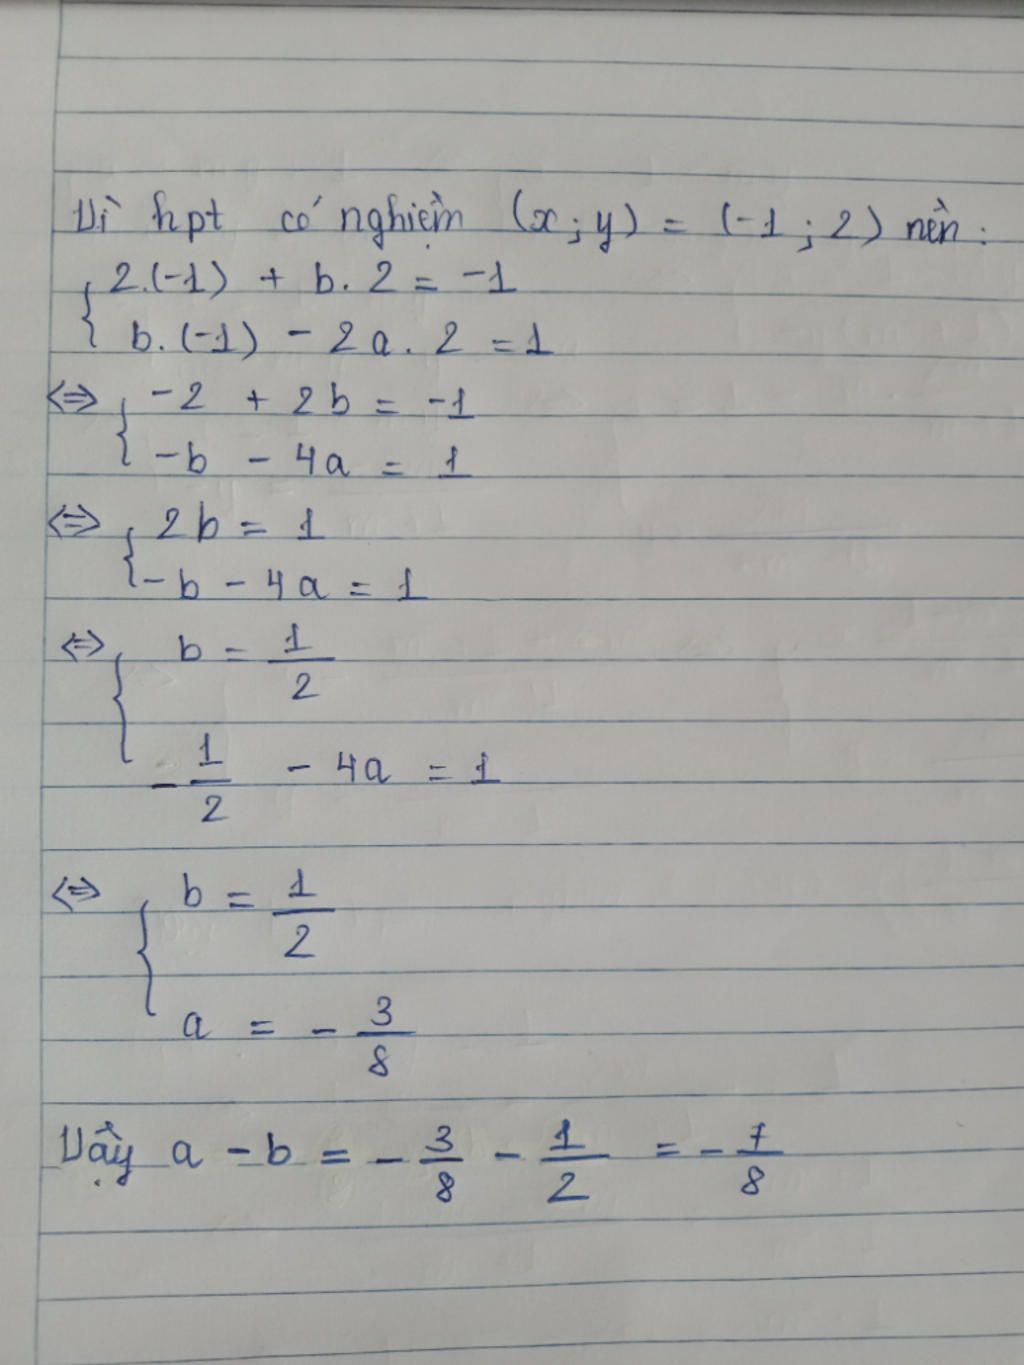 Vì hpt có nghiệm (x; y) = (-1; 2) nên:
{ 2.(-1) + b.2 = -1
b.(-1) - 2a.2 = 1
<=> { -2 + 2b = -1
-b - 4a = 1
<=> { 2b = 1
-b - 4a = 1
<=> { b = 1/2
-1/2 - 4a = 1
<=> { b = 1/2
a = -3/8
Vậy a - b = -3/8 - 1/2 = -7/8